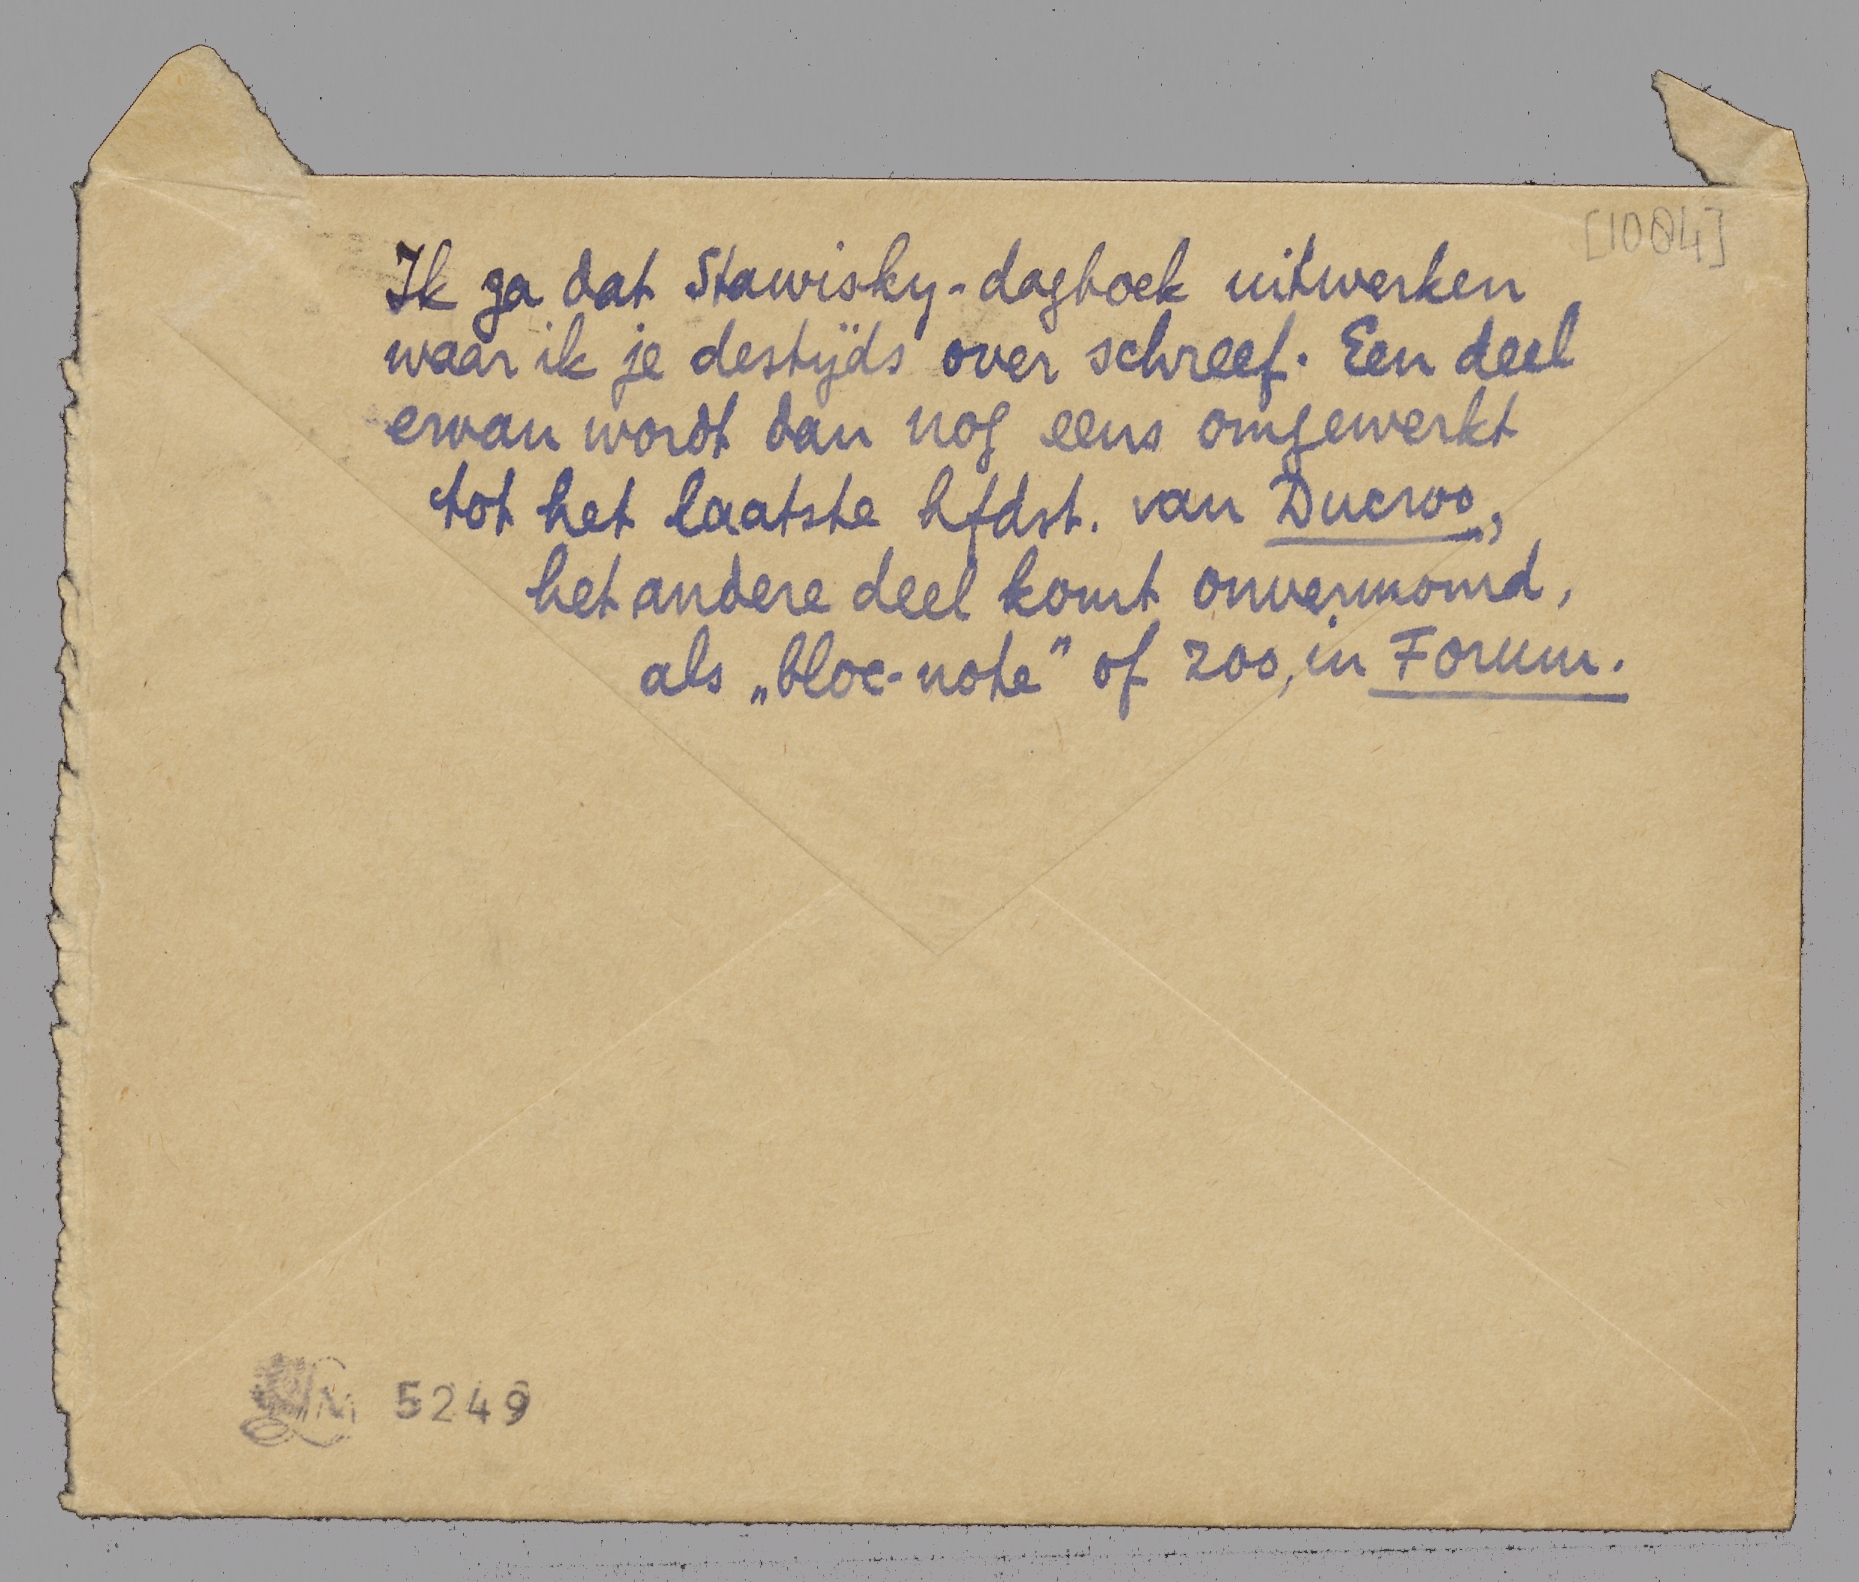 [1084]
Ik ga dat Stawisky-dagboek uitwerken
waar ik je destijds over schreef. Een deel
ervan wordt dan nog eens omgewerkt
tot het laatste hfdst. van Ducroo,
het andere deel komt onvermomd,
als „bloc-note" of zoo, in Forum.
5249